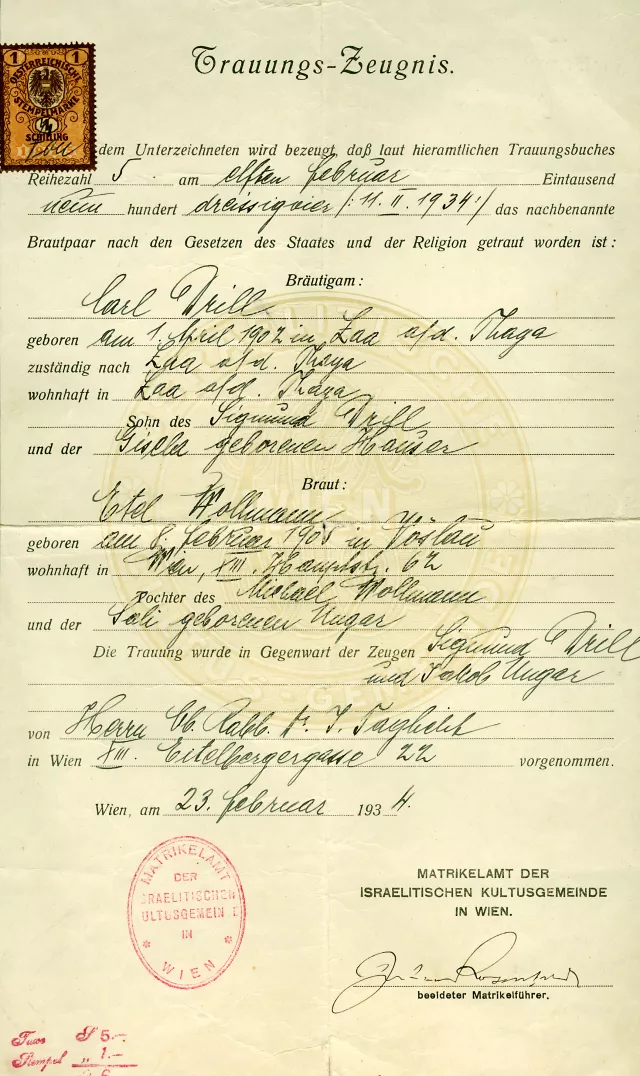 Trauungs-Zeugnis.
1 1
OESTERREICHISCHE
STEMPELMARKE
SCHILLING
Von dem Unterzeichneten wird bezeugt, daß laut hieramtlichen Trauungsbuches
Reihezahl 5. am elften Februar Eintausend
neun hundert dreissigvier /:11. II. 1934:/ das nachbenannte
Brautpaar nach den Gesetzen des Staates und der Religion getraut worden ist:
Bräutigam:
Carl Drill
geboren am 1. April 1902 in Laa a/d. Thaya
zuständig nach Laa a/d. Thaya
wohnhaft in Laa a/d. Thaya
Sohn des Sigmund Drill
und der Gisela geborenen Hauser
Braut:
Etel Wollmann
geboren am 8. Februar 1908 in Vöslau
wohnhaft in Wien, XIII. Hauptstr. 62
Tochter des Michael Wollmann
und der Sali geborenen Ungar
Die Trauung wurde in Gegenwart der Zeugen Sigmund Drill
und Jakob Ungar
von Herrn Ob. Rabb. Dr. I. Taglicht
in Wien XIII. Eitelbergergasse 22 vorgenommen.
Wien, am 23. Februar 1934.
MATRIKELAMT
DER
ISRAELITISCHEN
KULTUSGEMEINDE
IN
WIEN
MATRIKELAMT DER
ISRAELITISCHEN KULTUSGEMEINDE
IN WIEN.
beeideter Matrikelführer.
Taxe S 5.-
Stempel „ 1.-
6